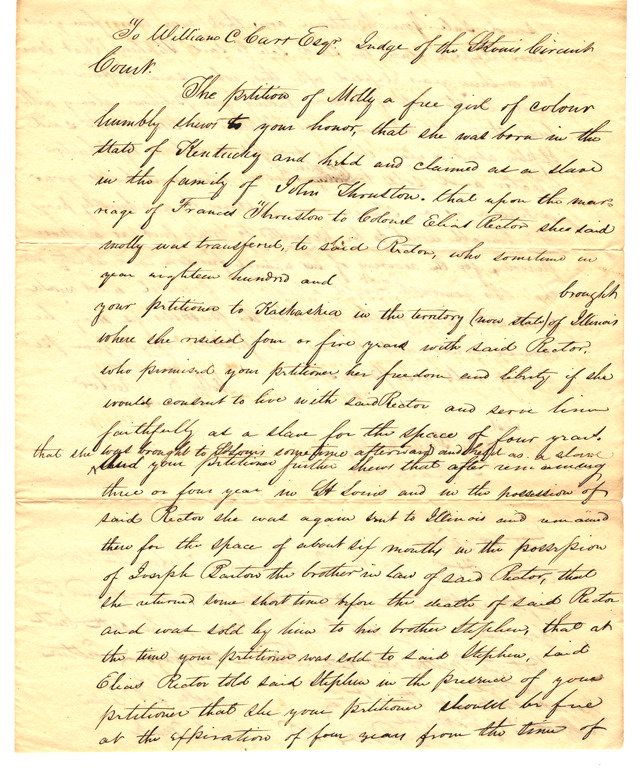 To William C. Carr Esqr. Judge of the St Louis Circuit
Court.
The petition of Molly a free girl of colour
humbly shews to your honor, that she was born in the
state of Kentucky and held and claimed as a slave
in the family of John Thruston. that upon the mar-
riage of Frances Thruston to Colonel Elias Rector she said
molly was transferred, to said Rector, who sometime in
year eighteen hundred and brought
your petitioner to Kaskaskia in the territory (now state) of Illinois
where she resided four or five years with said Rector.
who promised your petitioner her freedom and liberty if she
would consent to live with said Rector and serve him
faithfully as a slave for the space of four years.
that she was brought to St Louis sometime afterward and held as a slave
your petitioner further shews that after remaining
three or four year in St Louis and in the possession of
said Rector she was again sent to Illinois and remained
there for the space of about six months in the possession
of Joseph Barton the brother in law of said Rector, that
she returned some short time before the death of said Rector
and was sold by him to his brother Stephen, that at
the time your petitioner was sold to said Stephen, said
Elias Rector told said Stephen in the presence of your
petitioner that she your petitioner should be free
at the expiration of four years from the time of